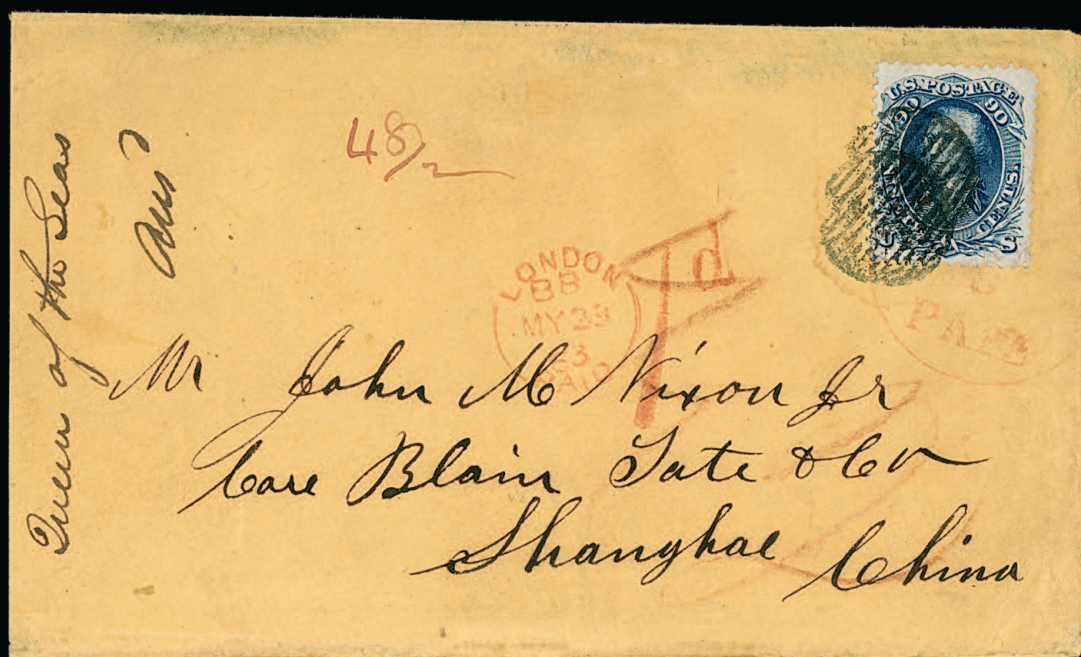 Queen of the Seas
Ans
48/2
U.S. POSTAGE
90 90
CENTS.
LONDON
BB
MY 23
63
PAID
1d
PAID
Mr John M Nixon Jr
Care Blain Tate & Co
Shanghae China